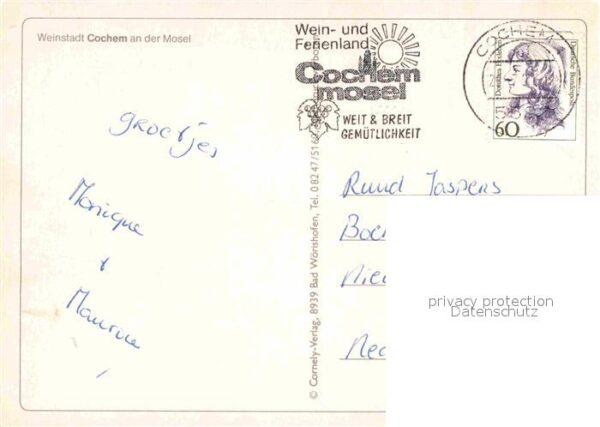 Weinstadt Cochem an der Mosel
Wein- und
Ferienland
Cochem
mosel
WEIT & BREIT
GEMÜTLICHKEIT
COCHEM
Deutsche Bundespost
60
groetjes
Monique
+
Maurice
Ruud Jaspers
© Cornely-Verlag, 8939 Bad Wörishofen, Tel. 08247/5160
privacy protection
Datenschutz